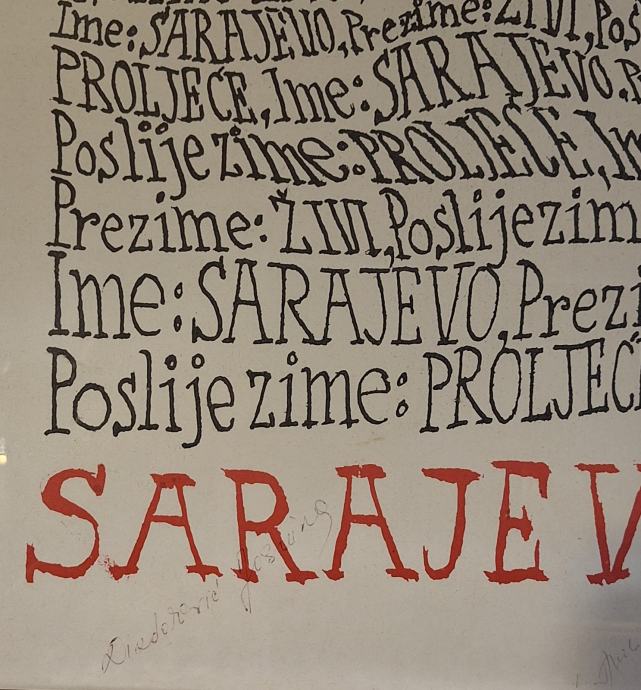 Ime: SARAJEVO, Prezime: ŽIVI, Pos
PROLJEĆE, Ime: SARAJEVO, P
Poslije zime: PROLJEĆE, Im
Prezime: ŽIVI, Poslije zim
Ime: SARAJEVO, Prezi
Poslije zime: PROLJEĆ
SARAJEV